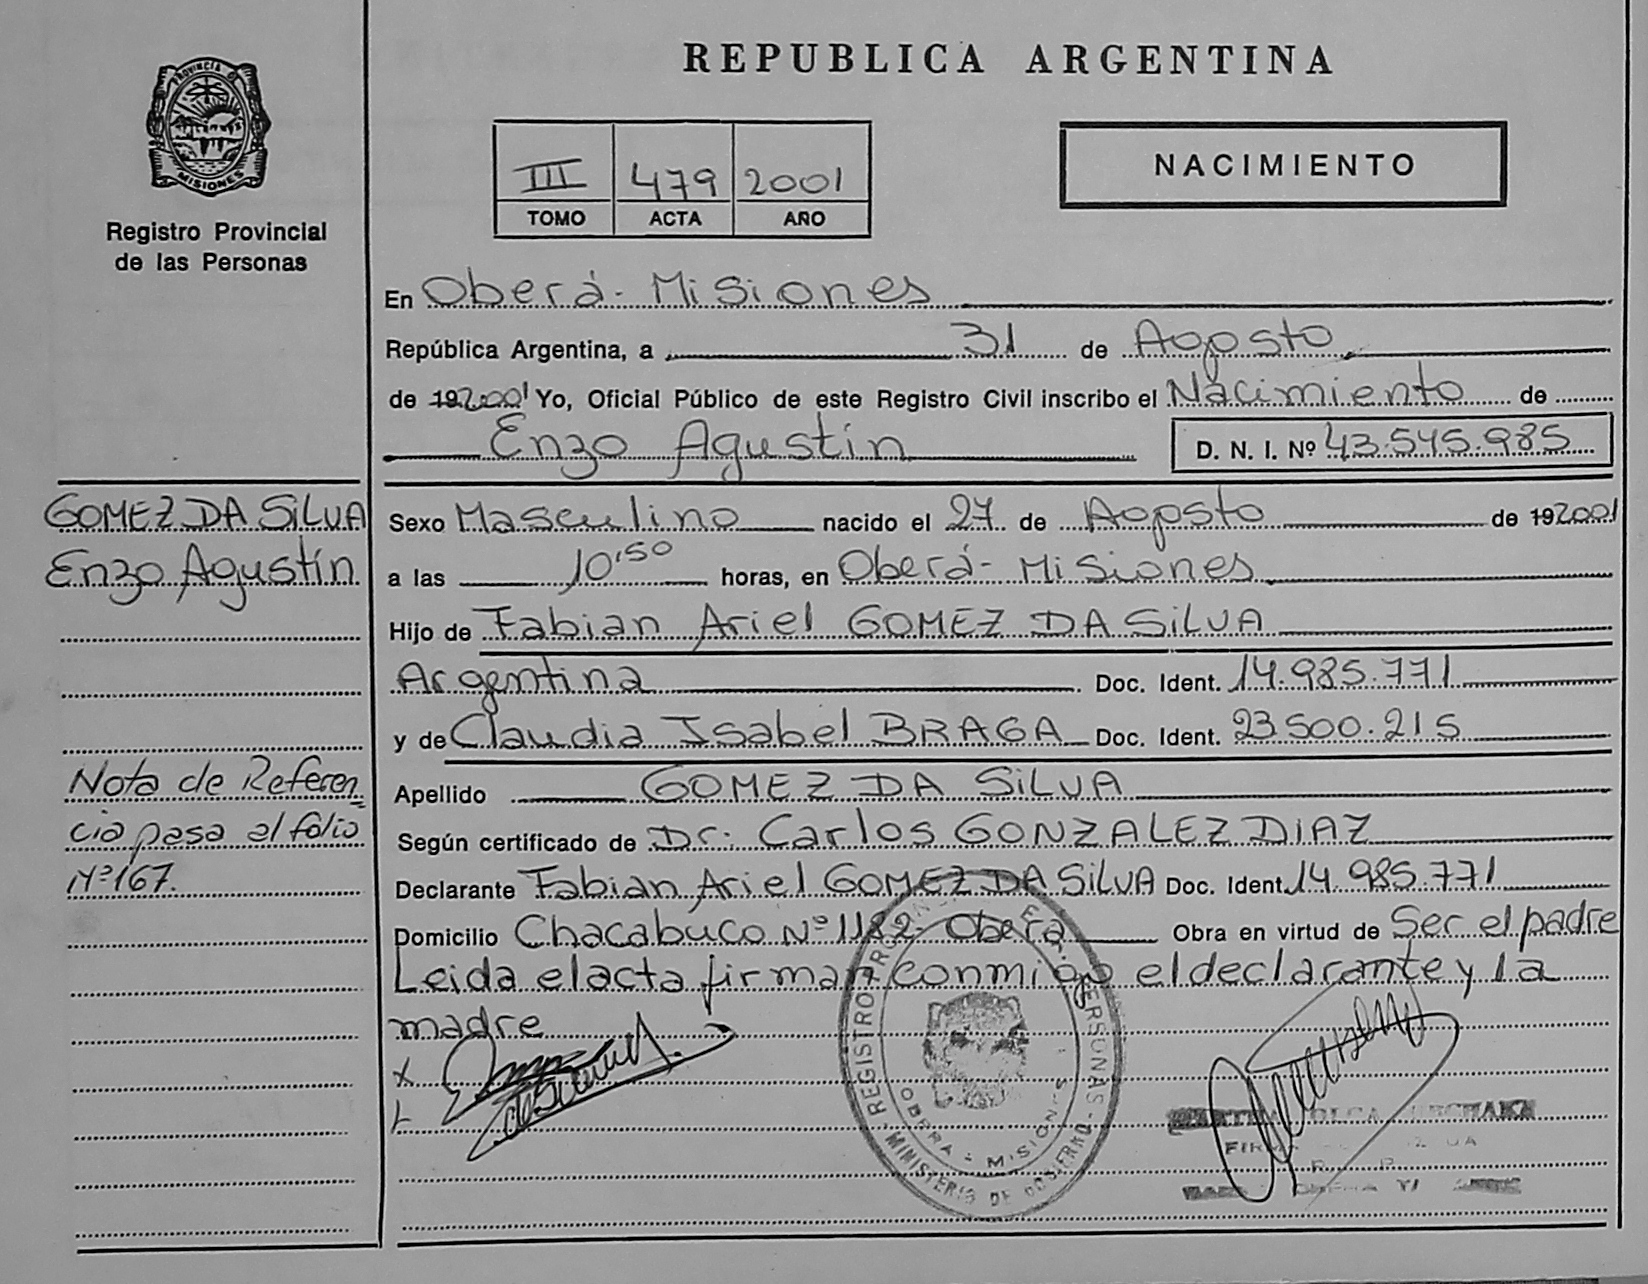 PROVINCIA DE
MISIONES
Registro Provincial
de las Personas
GOMEZ DA SILVA
Enzo Agustín
Nota de Referen
cia pasa al folio
Nº 167.
REPUBLICA ARGENTINA
III 479 2001
TOMO ACTA AÑO
NACIMIENTO
En Oberá - Misiones
República Argentina, a 31 de Agosto
de 19 2001 Yo, Oficial Público de este Registro Civil inscribo el Nacimiento de
Enzo Agustín D. N. I. Nº 43.545.985
Sexo Masculino nacido el 27 de Agosto de 19 2001
a las 10,50 horas, en Oberá - Misiones
Hijo de Fabian Ariel GOMEZ DA SILVA
Argentina Doc. Ident. 14.985.771
y de Claudia Isabel BRAGA Doc. Ident. 23.500.215
Apellido GOMEZ DA SILVA
Según certificado de Dr. Carlos GONZALEZ DIAZ
Declarante Fabian Ariel GOMEZ DA SILVA Doc. Ident. 14.985.771
Domicilio Chacabuco Nº 1182 - Oberá Obra en virtud de Ser el padre
Leida el acta firman conmigo el declarante y la
madre
REGISTRO PERSONAS
OBERA - MISIONES
MINISTERIO DE GOBIERNO